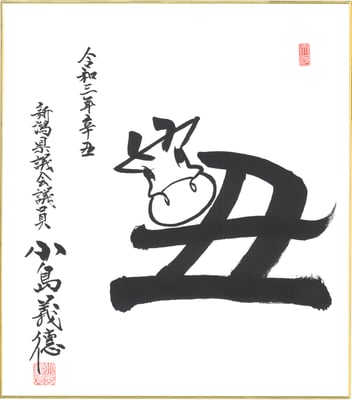 丑
令和三年辛丑
新潟県議会議員
小島義徳